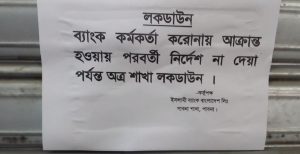 লকডাউন
ব্যাংক কর্মকর্তা করোনায় আক্রান্ত
হওয়ায় পরবর্তী নির্দেশ না দেয়া
পর্যন্ত অত্র শাখা লকডাউন ।
-কর্তৃপক্ষ
ইসলামী ব্যাংক বাংলাদেশ লিঃ
পাবনা শাখা, পাবনা।